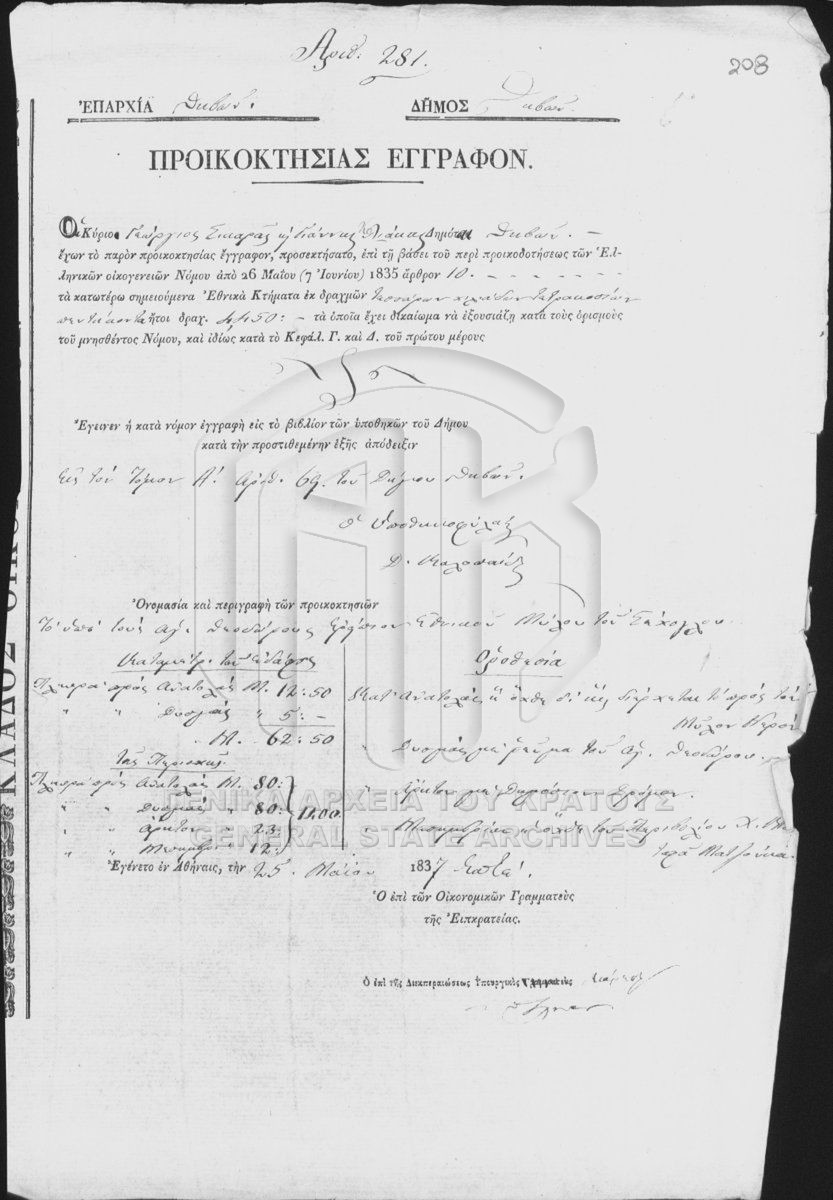 Αριθ: 281.
208
ἘΠΑΡΧΊΑ Θηβῶν:
ΔΗ͂ΜΟΣ Θηβῶν.
ΠΡΟΙΚΟΚΤΗΣΙΑΣ ΕΓΓΡΑΦΟΝ.
Οἱ Κύριοι Γεώργιος Σικαρᾶς κ Γιάννης Δημόται Θηβῶν. –
ἔχων τὸ παρὸν προικοκτησίας ἔγγραφον, προσεκτήσατο, ἐπὶ τῇ βάσει τοῦ περὶ προικοδοτήσεως τῶν Ἑλ-
ληνικῶν οἰκογενειῶν Νόμου ἀπὸ 26 Μαΐου (7 Ἰουνίου) 1835 ἄρθρον 10. - - - - - -
τὰ κατωτέρω σημειούμενα Ἐθνικὰ Κτήματα ἐκ δραχμῶν τεσσάρων χιλιάδων τετρακοσίων
πεντήκοντα ἤτοι δραχ. 4450: – τὰ ὁποῖα ἔχει δικαίωμα νὰ ἐξουσιάζῃ κατὰ τοὺς ὁρισμοὺς
τοῦ μνησθέντος Νόμου, καὶ ἰδίως κατὰ τὸ Κεφάλ. Γ. καὶ Δ. τοῦ πρώτου μέρους
Ἔγεινεν ἡ κατὰ νόμον ἐγγραφὴ εἰς τὸ βιβλίον τῶν ὑποθηκῶν τοῦ Δήμου
κατὰ τὴν προστιθεμένην ἑξῆς ἀπόδειξιν
Εἰς τὸν Τόμον Α! Αριθ. 69. τοῦ Δήμου Θηβῶν.
Ὁ Ὑποθηκοφύλαξ
Δ.
Ὀνομασία καὶ περιγραφὴ τῶν προικοκτησιῶν
Τὸ ὑπὸ τοὺς Ἁγ. Θεοδώρους Ἐθνικοῦ Μύλου τοῦ
Καταμέτρ. τοῦ ἐδάφους
Ὁροθεσία
Πλευρὰ πρὸς Ἀνατολὰς Μ. 12:50
" " Δυσμὰς " 5: –
Μ. 62:50
τῆς Περιοχῆς
Πλευρὰ πρὸς Ἀνατολὰς Μ. 80:
" " Δυσμὰς " 80:
" " Ἄρκτον " 23.
" " Μεσημβρ. " 12.
1400
Κατ' Ἀνατολὰς ἡ ὄχθη δι' ἧς διέρχεται τὸ πρὸς τὸν
Μύλον Νερόν
" Δυσμὰς μὲ ῥεῦμα τοῦ Ἁγ. Θεοδώρου.
" Ἄρκτον μὲ Δημόσιον Δρόμον.
" Μεσημβρίαν ἡ ὄχθη τοῦ Περιβολίου Χ.
Ἐγένετο ἐν Ἀθήναις, τὴν 25. Μαΐου 1837 ἑπτά.
Ὁ ἐπὶ τῶν Οἰκονομικῶν Γραμματεὺς
τῆς Ἐπικρατείας.
Ὁ ἐπὶ τῆς Διεκπεραιώσεως Ὑπουργικὸς Γραμματεὺς
ΚΛΑΔΟΣ
ΓΕΝΙΚΑ ΑΡΧΕΙΑ ΤΟΥ ΚΡΑΤΟΥΣ
GENERAL STATE ARCHIVES